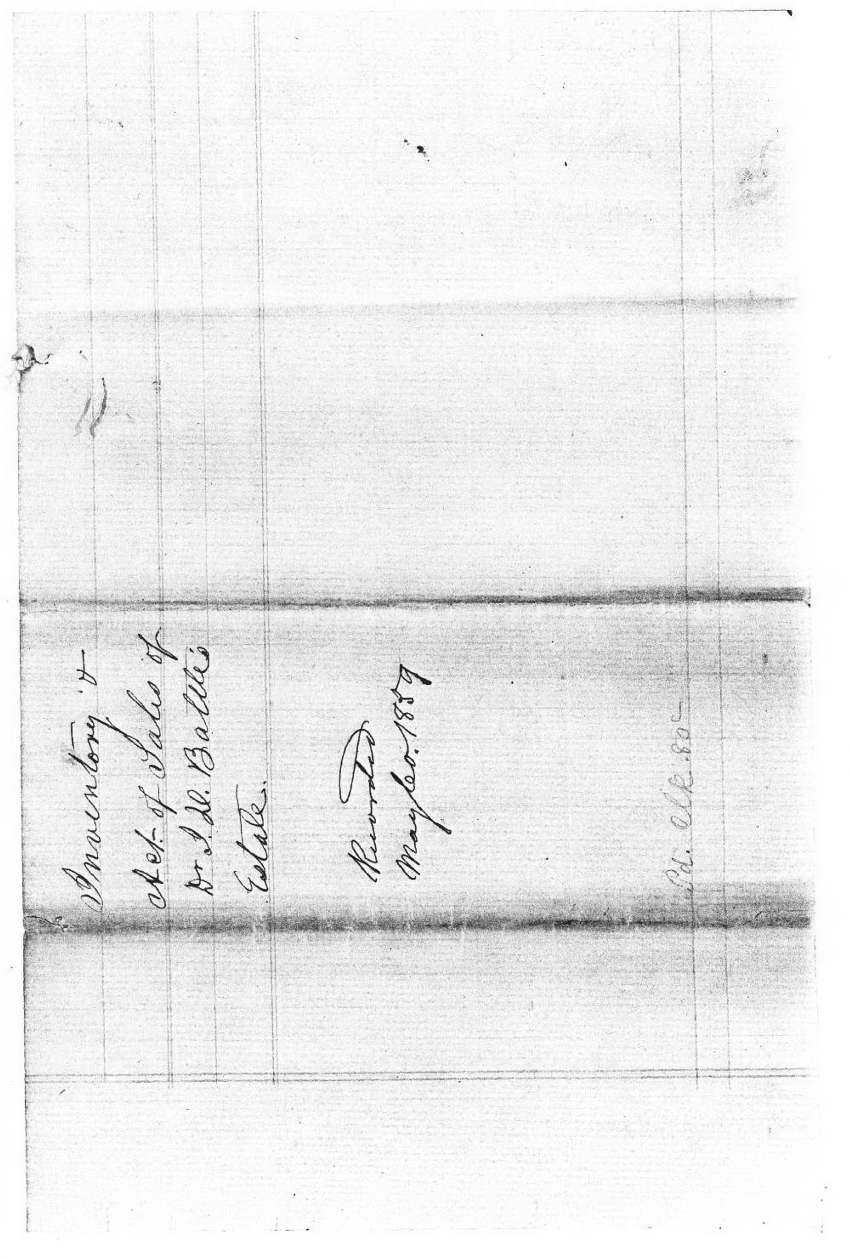 Inventory &
Act of Sales of
Dr J. W. Battle's
Estate.
Recorded
May 1859
Pd. Clk. 80c